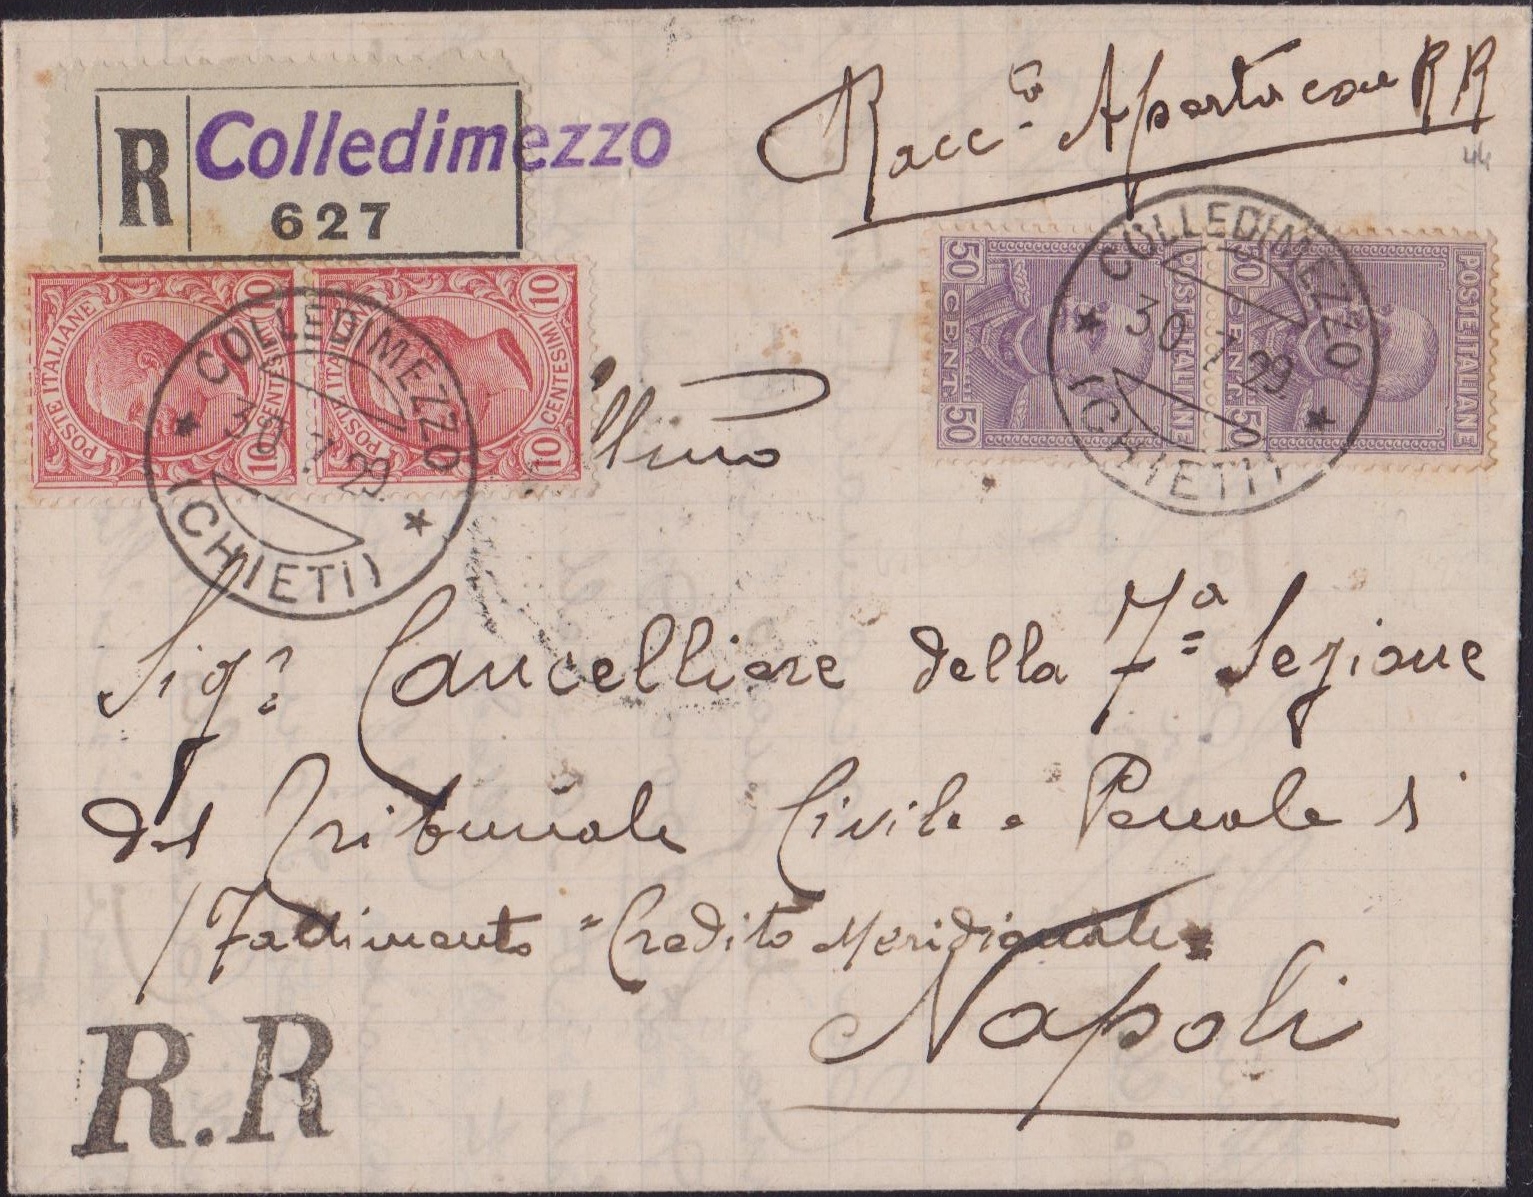 R Colledimezzo
627
Racc.ta Aperta con RR
44
POSTE ITALIANE
10 CENTESIMI 10
POSTE ITALIANE
10 CENTESIMI 10
COLLEDIMEZZO
30.7.29.
(CHIETI)
50 CENT. 50
POSTE ITALIANE
50 CENT. 50
POSTE ITALIANE
COLLEDIMEZZO
30.7.29.
(CHIETI)
Sigr. Cancelliere della 7ª Sezione
del Tribunale Civile e Penale di
/Fallimento "Credito Meridionale"
Napoli
R.R